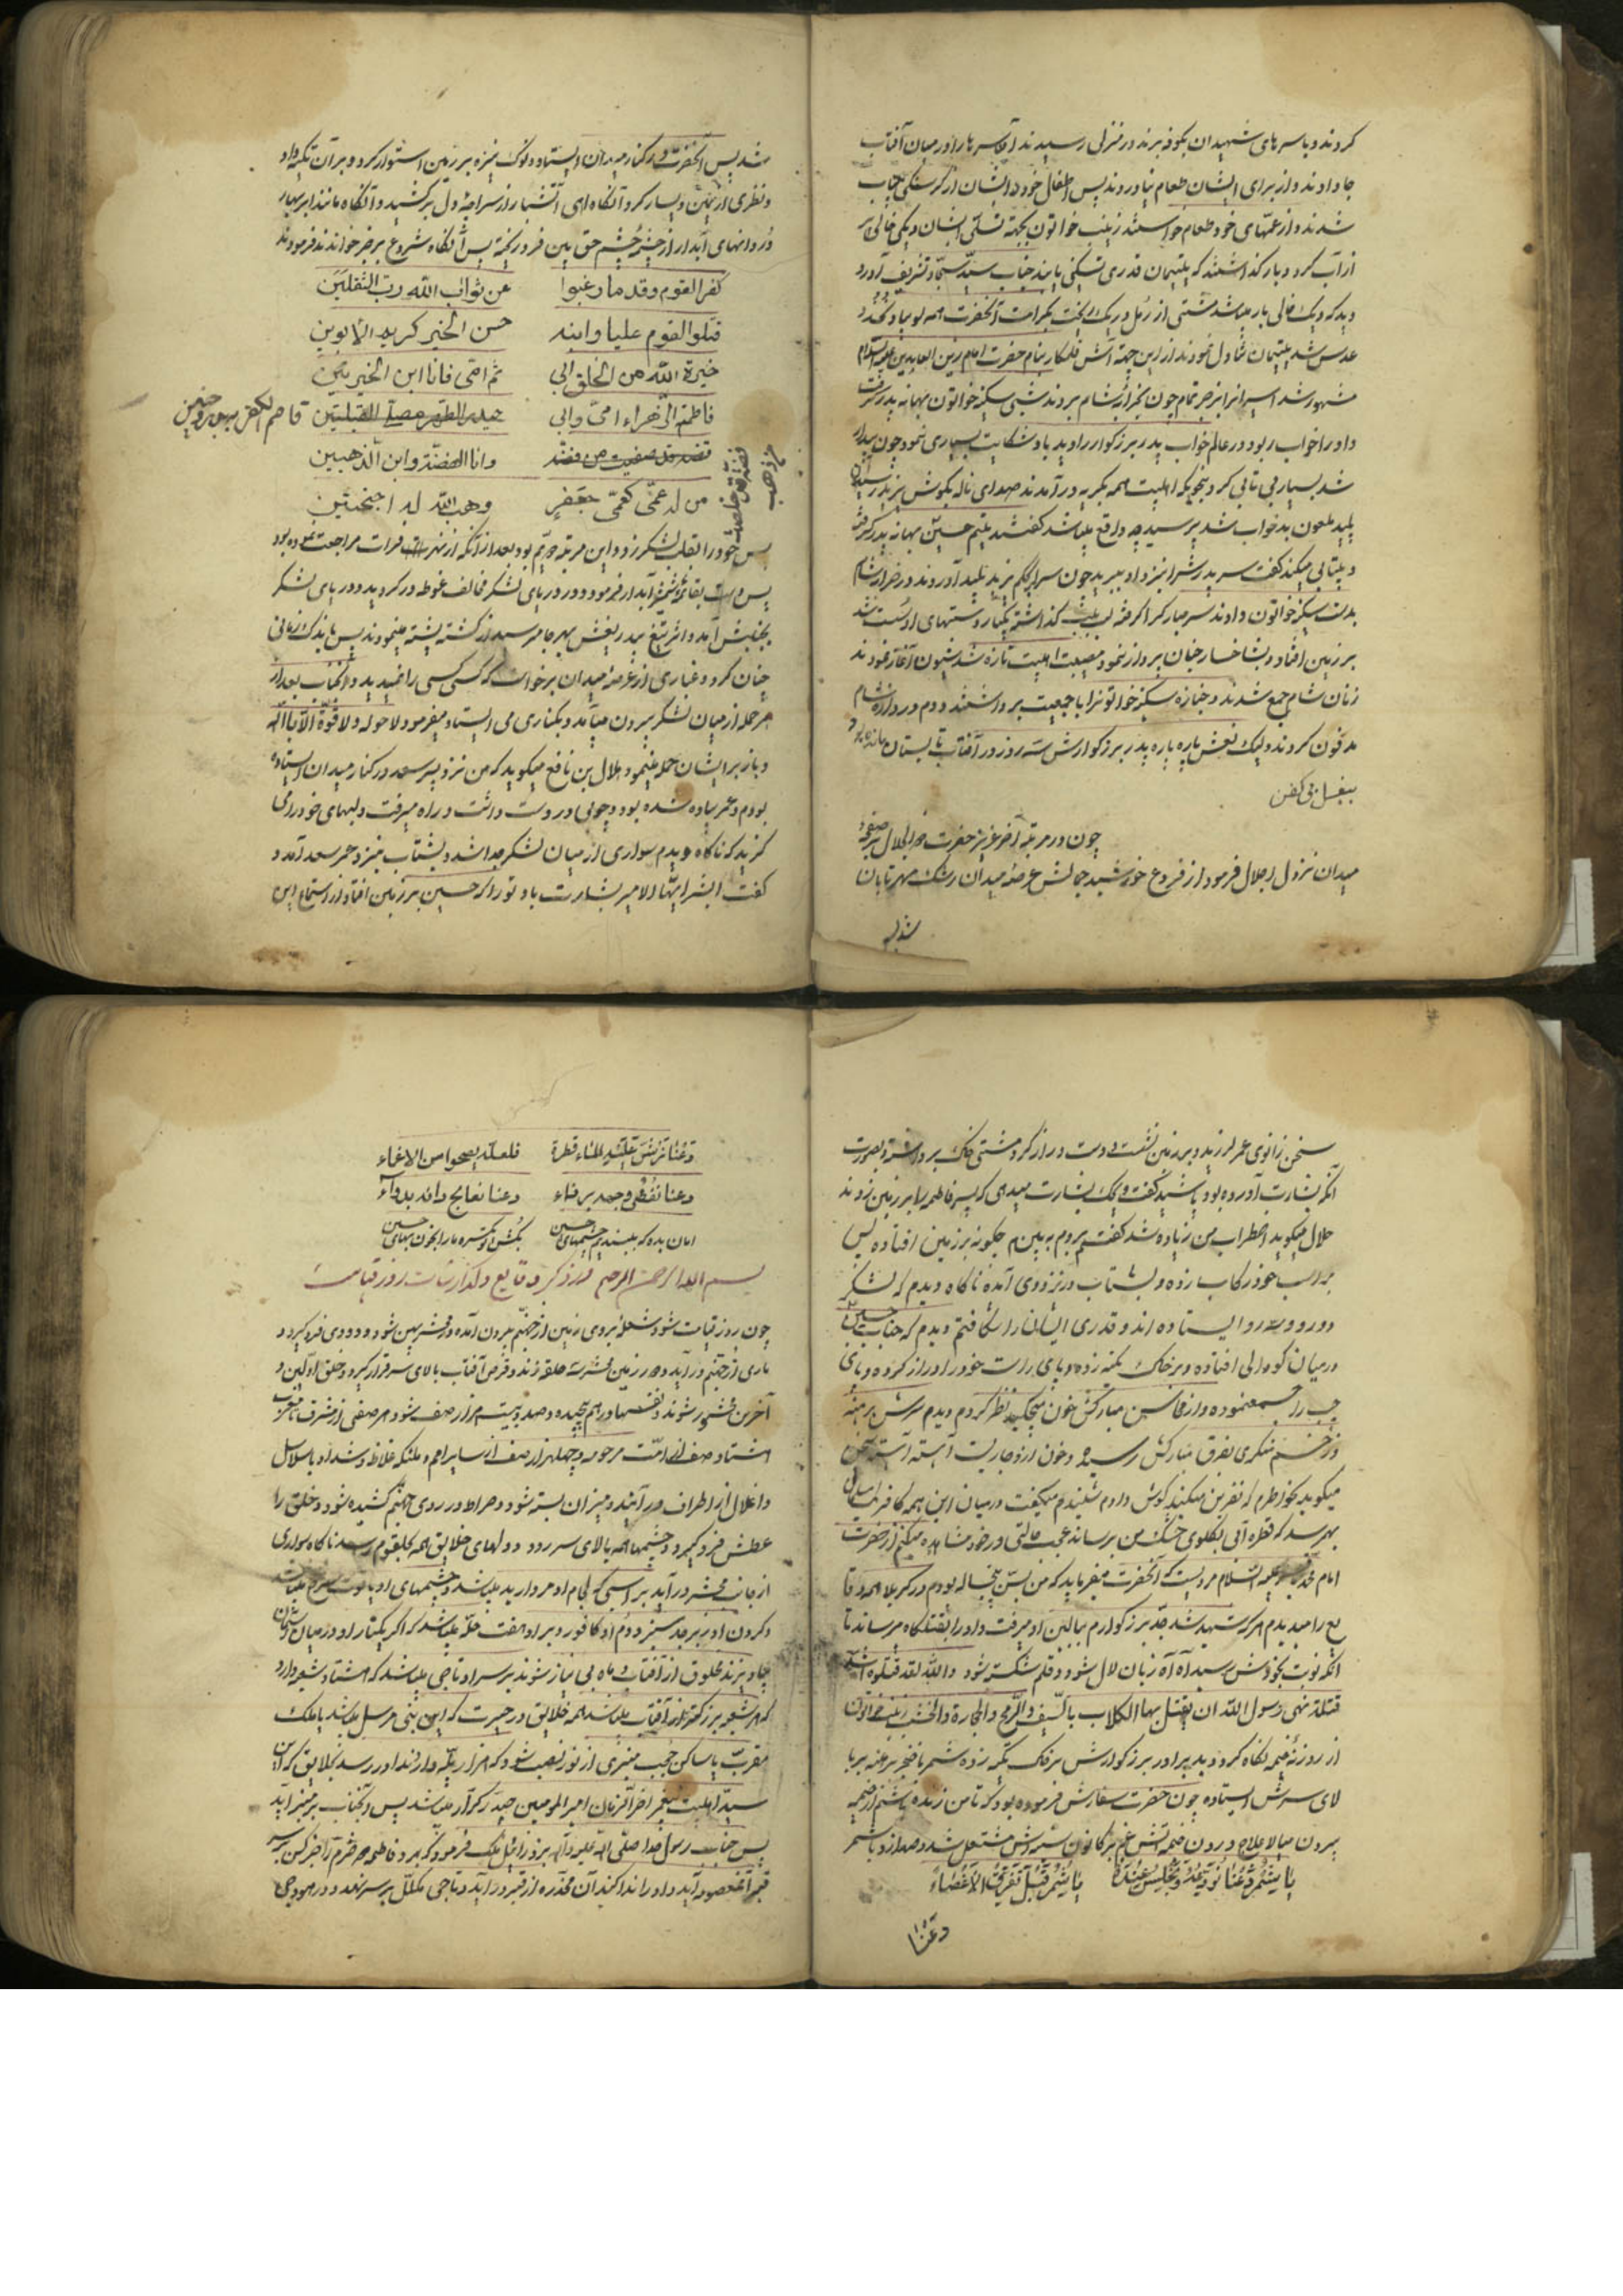 کردند و با سرهای شهیدان بکوفه برند در منزلی رسیدند آن سرها را در میان آفتاب
جا دادند و از برای ایشان طعام نیاوردند پس اطفال خورد ایشان از گرسنگی بیتاب
شدند و از عمهای خود طعام خواستند زینب خواتون بجهة تسلی ایشان دیکی خالی پر
از آب کرد و ببار گذاشتند که یتیمان قدری تسکین یابند جناب سید سجاد تشریف آورد
دید که دیک خالی بار میباشد مشتی از رمل در دیک ریخت بکرامت آنحضرت همه لوبیا و نخود
عدس شد یتیمان تناول نمودند از این جهة آش قلمکار بنام حضرت امام زین العابدین علیه السلام
مشهور شد اسیرانرا بزجر تمام چون بخرابهٔ شام بردند شبی سکینه خواتون بهانه پدر گرفت
داور را خواب ربود در عالم خواب پدر بزرکوار را دید با و شکایت بسیاری نمود چون بیدار
شد بسیار بی تابی کرد بنحویکه اهلبیت همه بگریه در آمدند صدای ناله بکوش یزید رسید آن
پلید ملعون بدخواب شد پرسید چه واقع میباشد گفتند یتیم حسین بهانه پدر گرفته
و بیتابی میکند گفت سر پدرش را نزد او ببرید چون سر را بحکم یزید پلید آوردند در خرابه شام
بدست سکینه خواتون دادند سر مبارکرا گرفته لب بلبش گذاشته یکبار دستهای او سست شد
بر زمین افتاد و بشاخسار جنان پرواز نمود مصیبت اهلبیت تازه شد شیون آغاز نمودند
زنان شام جمع شدند و جنازه سکینه خواتونرا با جمعیت برداشتند و دم دروازه شام
مدفون کردند ولیک نعش پاره پاره پدر بزرکوارش سه روز در آفتاب تابستان مانده بود
بیغسل بی کفن
چون در مرتبه آخر عزیز حضرت ذو الجلال بر صفحه
میدان نزول اجلال فرمود از فروغ خورشید جمالش عرصه میدان رشک مهر تابان
شد پس
شد پس آنحضرت در کنار میدان ایستاده و نوک نیزه بر زمین استوار کرد و بر آن تکیه داد
و نظری از یمین و یسار کرد آنگاه آهی آتشبار از سراچهٔ دل بر کشید و آنگاه مانند ابر بهار
دردانهای آبدار از چشمهٔ چشم حق بین فرو ریخت پس آنگاه شروع برجز خواندند فرمودند
کفر القوم وقدما رغبوا عن ثواب الله رب الثقلین
قتلوا القوم علیا وابنه حسن الخیر کریم الابوین
خیرة الله من الخلق ابی ثم امی فانا ابن الخیرتین
فاطمة الزهراء امی وابی حیدر الطهر مصلی القبلتین
قاصم الکفر ببدر وحنین
فضة قد صفیت من فضة وانا الفضة وابن الذهبین
فضة قد خلصت من ذهب
من له عمی کعمی جعفر وهب الله له اجنحتین
پس خود را بقلب لشکر زد و این مرتبه دویم بود بعد از آنکه از نهر فرات مراجعت نموده بود
پس دست بقائمهٔ شمشیر آبدار فرمود و در دریای لشکر مخالف غوطه ور کردید و دریای لشکر
بجنبش آمد و اثر تیغ بیدریغش بهر جا میرسید از کشته پشته مینمودند پس باندک زمانی
چنان کرد و غباری از عرصه میدان برخواست که کسی کسی را نمیدید و آنجناب بعد از
هر حمله از میان لشکر بیرون میآمد و بکناری می ایستاد میفرمود لا حول ولا قوة الا بالله
و باز بر ایشان حمله مینمود هلال بن نافع میکوید که من نزد پسر سعد در کنار میدان ایستاده
بودم و عمر پیاده شده بود و چوبی در دست داشت و راه میرفت و لبهای خود را می
گزید که ناگاه دیدم سواری از میان لشکر جدا شد و بشتاب نیزد عمر سعد آمد و
گفت ابشر ایها الامیر بشارت باد تو را که حسین بر زمین افتاد از استماع این
سخن زانوی عمر لرزید و بر زمین نشست و دست دراز کرد مشتی خاک برداشته و بصورت
آنکه بشارت آورده بود پاشید گفت ویحک بشارت میدهی که پسر فاطمه را بر زمین زدند
هلال میکوید اضطراب من زیاده شد گفتم بروم به بینم چکونه بر زمین افتاده پس
بر اسب خود رکاب زده و بشتاب در نزد وی آمده ناگاه دیدم که لشکر
دور و دسته رو ایستاده اند و قدری ایشانرا شکافتم دیدم که جناب حسین
در میان کودالی افتاده و بر خاک تکیه زده و پای راست خود را دراز کرده و پای
چپ را جمع نموده و از محاسن مبارکش خون میچکید نظر کردم دیدم سرش برهنه
و زخم منکری بفرق مبارکش رسیده و خون از او جاریست آهسته آهسته سخن
میکوید بخواطرم که نفرین میکند کوش دادم شنیدم میکفت در میان این همه کافر یک مسلمان
بهم رسد که قطره آبی بکلوی خشک من برساند عجب حالتی در خود مشاهده میکنم از حضرت
امام محمد باقر علیه السلام مرویست که آنحضرت میفرماید که من بسن پنجساله بودم در کربلا همه وقا
یع را میدیدم هر که شهید شد جد بزرکوارم ببالین او میرفت و او را بقتلکاه میرساند تا
آنکه نوبت بخودش رسید آه آه زبان لال شود و قلم شکسته شود والله لقد قتلوه اشد
قتلة نهی رسول الله ان یقتل بها الکلاب بالسیف والرمح والحجارة والخشب زینب خواتون
از روزنهٔ خیمه نگاه کرد دید برادر بزرکوارش بر خاک تکیه زده شمر با خنجر برهنه بر با
لای سرش ایستاده چون حضرت سفارش فرموده بود که تا من زنده باشم از خیمه
بیرون میا لاعلاج درون خیمه آتش غم بر کانون سینه‌اش مشتعل شد و صدا زد با شمر
یا شمر دعنا نودعه ونجلس عنده یا شمر قبل تفرق الاعضاء
دعنا
دعنا نرش علیه الماء قطرة فلعله یصحو من الاغماء
دعنا نغطی وجهه برداء دعنا نعالج دائه بدواء
امان بده که ببندیم چشمهای حسین بکش تو یکسره ما را بخون بهای حسین
بسم الله الرحمن الرحیم در ذکر وقایع و گذارشات روز قیامت
چون روز قیامت شود شعلهٔ بروی زمین از جهنم بیرون آمده و محشر بین شود و دودی فرو گیرد و
ماری از جهنم در آید و دور زمین محشر سه حلقه زند و قرص آفتاب بالای سر قرار گیرد و خلق اولین و
آخرین محشور شوند و نفسها در هم پیچیده و صد و بیست هزار صف شود هر صفی از مشرق تا مغرب
هشتاد صف از امت مرحومه و چهل هزار صف از سایر امم و ملئکه غلاظ و شداد با سلاسل
و اغلال از اطراف در آیند و میزان بسته شود و صراط در روی جهنم کشیده شود و خلق را
عطش فرو گیرد و چشمها همه بالای سر رود و دلهای خلایق همه بحلقوم رسد ناگاه سواری
از جانب محشر در آید بر اسبی که لجام او مروارید میباشد و چشمهای او یاقوت سرخ میباشد
و کردن او زبرجد سبز و دم او کافور و بر او هفت حله میباشد که اگر یکتار او در میان زمین و آسمان
بیاویزند مخلوق از آفتاب و ماه بی نیاز شوند بر سر او تاجی میباشد که هشتاد شعبه دارد
که هر شعبه بزرکتر از آفتاب میباشد همه خلایق در حیرت که این نبی مرسل میباشد یا ملک
مقرب یا ساکن حجب منبری از نور نصب شود که هزار پله دارد ندا در رسد بخلایق که این
سید اهلبیت پیغمبر آخر الزمان امیر المومنین حیدر کرار میباشد پس آنجناب بر منبر آید
پس جناب رسول خدا صلی الله علیه و آله بر وزرائیل ملک فرمود که برو فاطمه دخترم را خبر کن بر سر
قبر آنمعصومه آید و او را ندا کند آن مخدره از قبر در آید و تاجی مکلل بر سر نهد و در هودجی